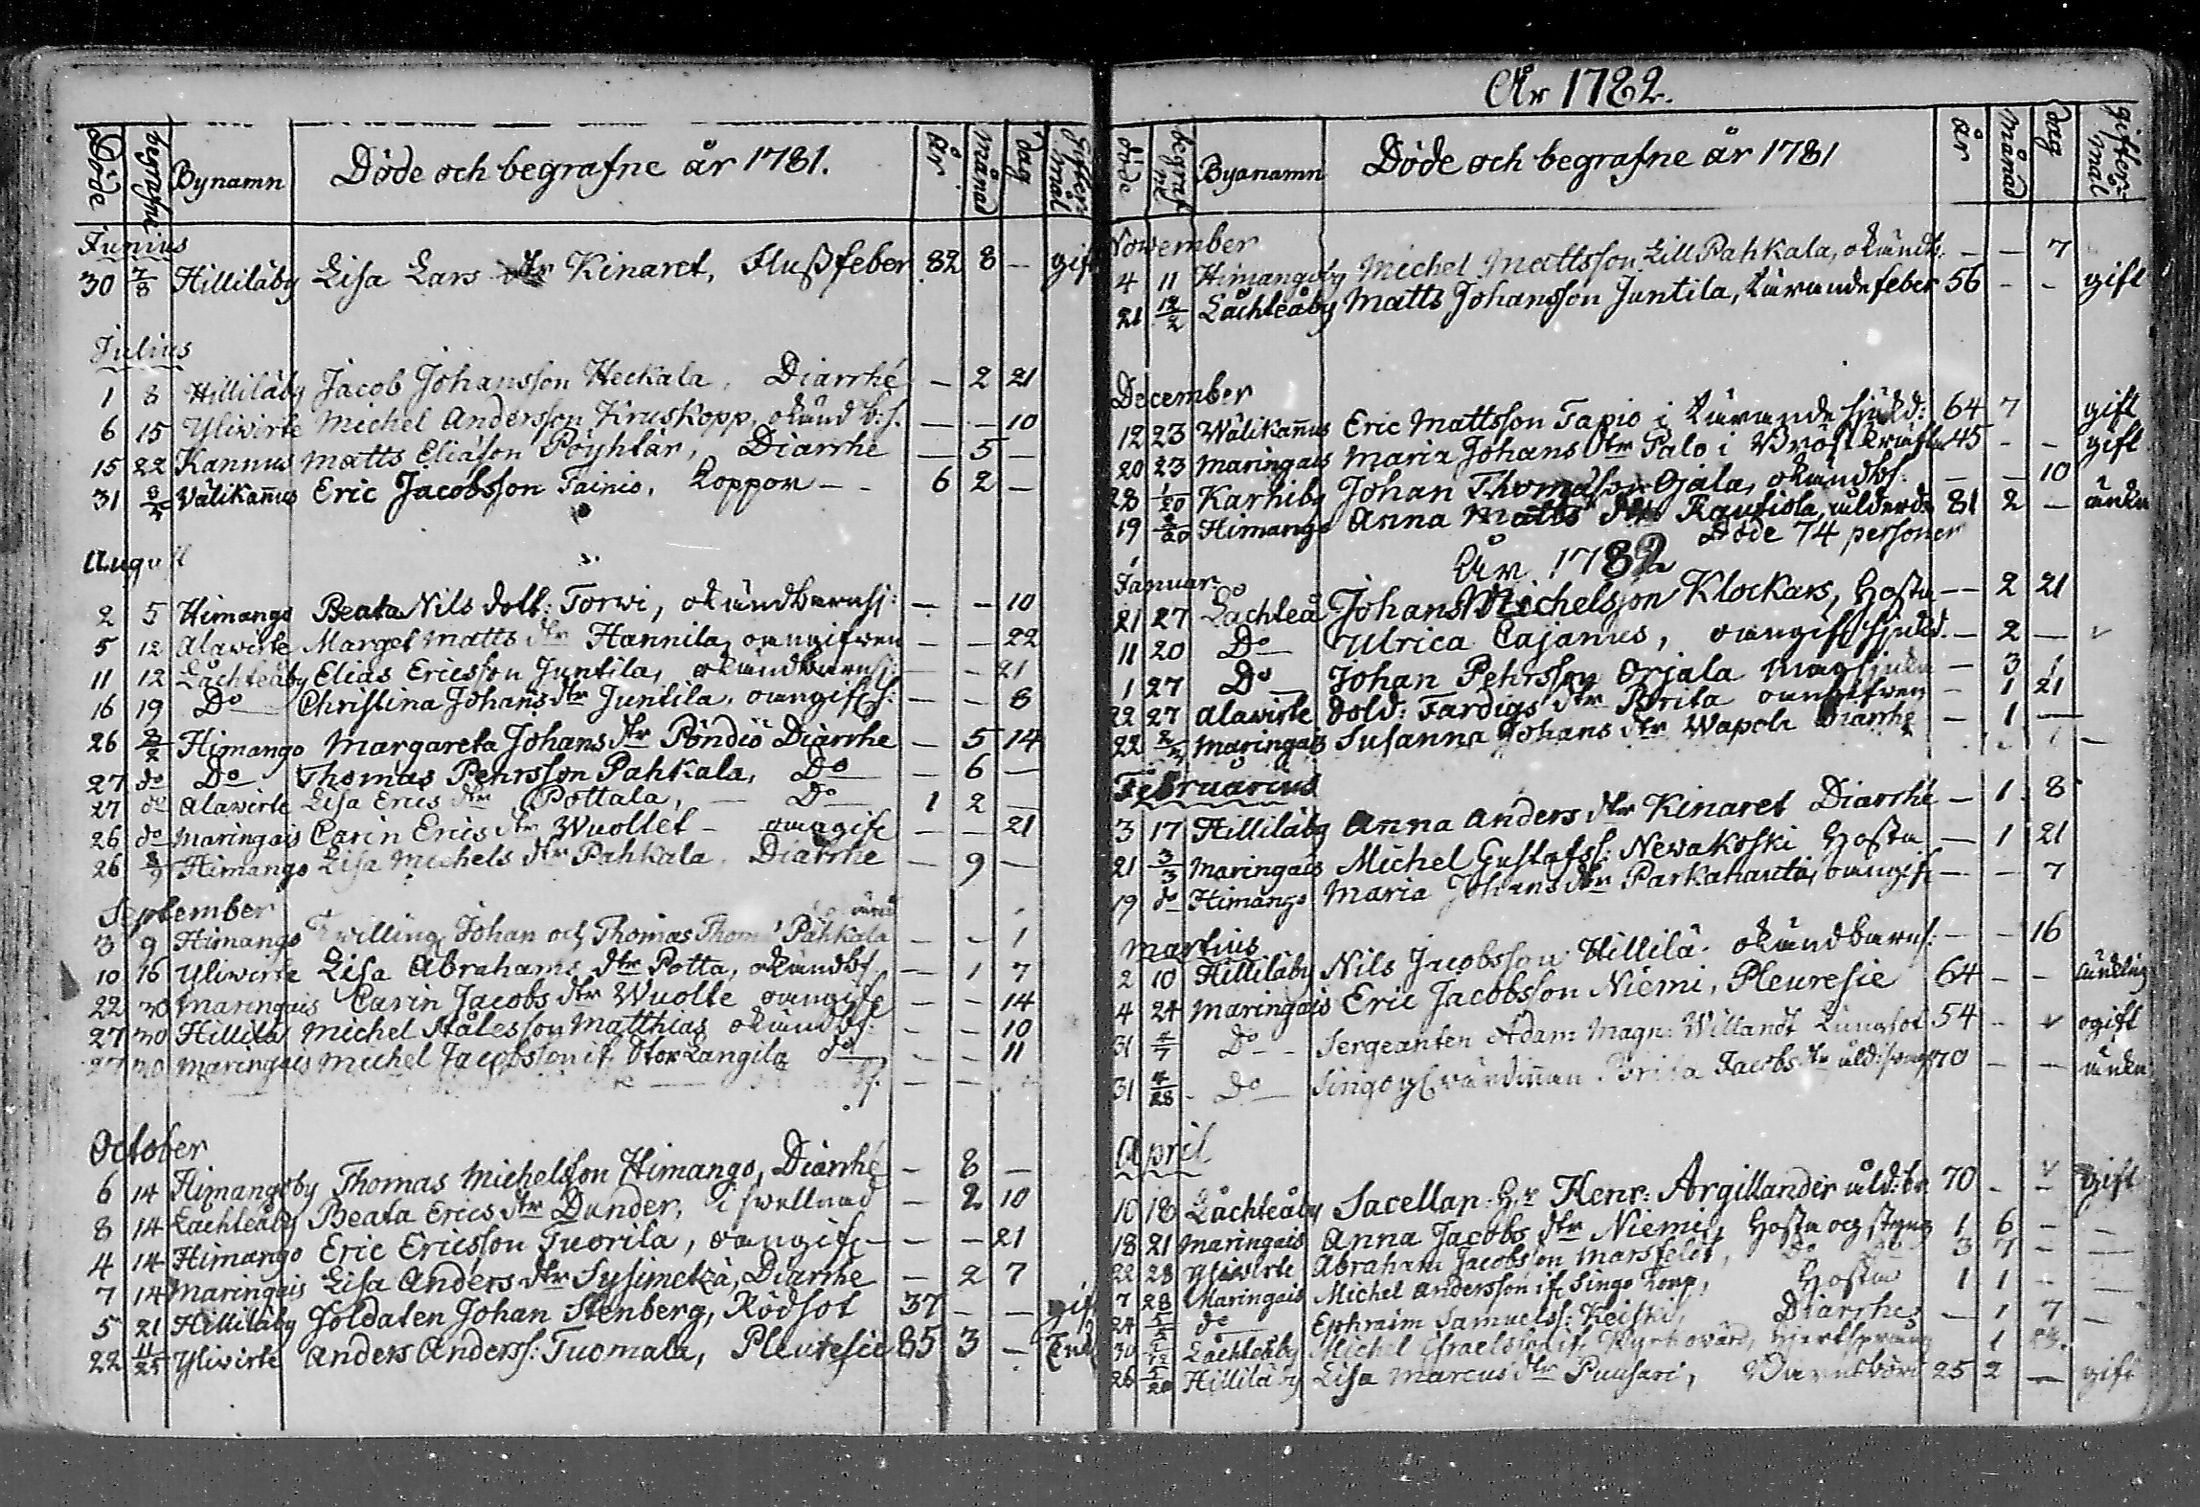 Döde
begrafne
Bynamn
Döde och begrafne år 1781.
år
månad
dag
gifter mål
Junius
30 7/8 Hilliläby Lisa Lars dtr Kinaret, Flussfeber 82 8 — gift
Julius
1 8 Hilliläby Jacob Johansson Heckala, Diarrhé — 2 21
6 15 Yliwirte Michel Andersson Kruskopp, okänd b:s. — — 10
15 22 Kannus Matts Eliason Pöyhtär, Diarrhe — 5 —
31 Wälikan̄us Eric Jacobsson Tainio, Koppor — 6 2 —
August
2 5 Himango Beata Nils dott: Torwi, okändbarnsj: — — 10
5 12 Alawirte Marget Matts dtr Hannila, oangifwen — — 22
11 12 Låchteåby Elias Ericsson Juntila, okändbarnsj: — — 21
16 19 Do Christina Johans dtr Juntila, oangif — — 8
26 Himango Margareta Johans dtr Pöndiö Diarrhe — 5 14
27 do Do Thomas Pehrsson Pahkala, Do — 6 —
27 do Alawirte Lisa Erics dtr Pottala, — Do 1 2 —
26 do Maringais Carin Erics dtr Wuollet — oangif — — 21
26 Himango Lisa Michels dtr Pahkala, Diarrhe — 9 —
September
3 9 Himango Twilling Johan och Thomas Pahkala — — 1
10 16 Yliwirte Lisa Abrahams dtr Potta, okändbs — 1 7
22 30 Maringais Carin Jacobs dtr Wuolle oangif — — 14
27 30 Hillilä Michel Stålesson Matthias okändbs: — — 10
27 30 Maringais Michel Jacobsson if. StorLangila do — — 11
October
6 14 Himangoby Thomas Michelsson Himango, Diarrhé — 8 —
8 14 Lachteåby Beata Erics dtr Dunder, i swullnad — 2 10
4 14 Himango Eric Ericsson Tuorila, oangif — — — 21
7 14 Maringais Lisa Anders dtr Sysimetzä, Diarrhe — 2 7
5 21 Hilliläby Soldaten Johan Stenberg, Rödsot 37 — — gift
22 11/25 Yliwirte Anders Anderss: Tuomala, Pleuresie 85 3 — Enk
År 1782.
döde
begrafne
Byanamn
Döde och begrafne år 1781
år
månad
dag
gifter mål
November
4 11 Himangoby Michel Mattsson Lill Pahkala, okändb: — — 7
21 12/2 Låchteåby Matts Johansson Juntila, tärandefeber 56 — — gift
December
12 23 Wälikan̄us Eric Mattsson Tapio i tärande sjukd: 64 7 gift
20 23 Maringais Maria Johans dtr Palo i Bröstkräfta 45 — — gift
28 1/20 Karhiby Johan Thomasson Ojala, okändbs. — — 10
19 Himango Anna Matts dtr Rautiola, ålderd: 81 2 — änka
Döde 74 personer
År 1782
Januar:
21 27 Lachteå Johans Michelsson Klockars, hosta — 2 21
11 20 Do Ulrica Cajanus, oangif sjukd. — 2 —
1 27 Do Johan Pehrsson Orjala Magsjuka — 3 1
22 27 Alawirte Sold: Fardigs dtr Brita oangifwen — 1 21
22 Maringais Susanna Johans dtr Wapola Diarrhe — 1 —
Februarius
3 17 Hilliläby Anna Anders dtr Kinaret Diarrhé — 1 8
21 3/3 Maringais Michel Gustafss: Newakoski hosta — 1 21
19 do Himango Maria Johans dtr Parkahauta, oangif — — 7
Martius
2 10 Hilliläby Nils Jacobsson Hillilä okändbarns: — — 16
4 24 Maringais Eric Jacobsson Niemi, Pleuresie 64 — — änkling
31 4/7 Do Sergeanten Adam Magn: Willandt Lungsot 54 — ogift
31 4/28 Do Brita Jacobs dtr 70 — — änka
April
10 18 Låchteåby Sacellan: Hr Henr: Argillander åld:br 70 — — gift
18 21 Maringais Anna Jacobs dtr Niemi, hosta och styng 1 6 —
22 28 Yliwirte Abraham Jacobsson Marsfelt, do 3 7 —
7 28 Maringais Michel Andersson if Singo torp, hosta 1 1 —
24 do Ephraim Samuelss: Keiski, Diarrhes — 1 7
30 Lachteåby Michel Israelsson if. 1
26 5/20 Hilliläby Lisa Marcus dtr Puusari, Barnsbörd 25 2 — gift